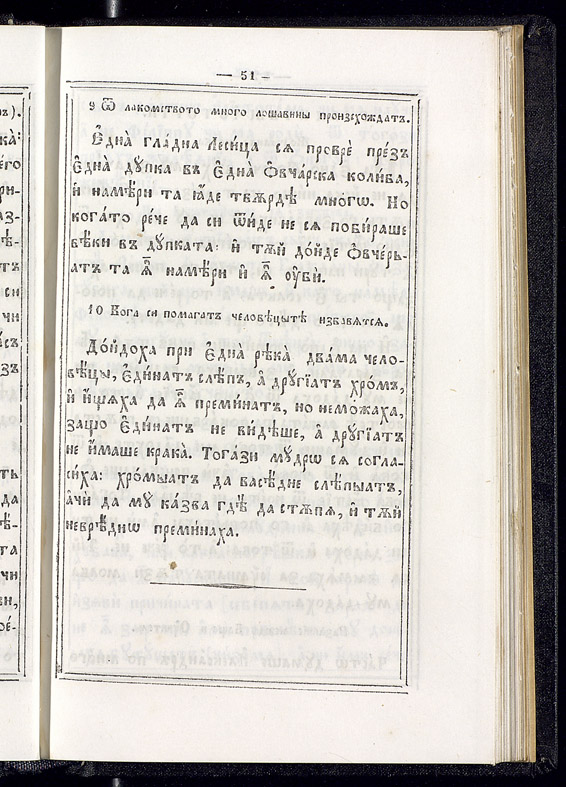 — 51 —
9 Ѿ лакомството много лошавины произсхождатъ.
Є҆дна̀ гла́дна Леси́ца сѧ проврѐ пре́зъ
Є҆дна̀ дꙋпка въ Є҆дна̀ Ѻ҆вча́рска коли́ба,
и҆ намѣ́ри та ꙗ҆́де твѫрдѣ̀ мно́гѡ. Но
кога́то ре́че да си ѿи́де не сѧ побѝраше
вѣ́ки въ дꙋпката: и҆ тѫ́й до́йде Ѻ҆вче́рь-
атъ та ѫ҆̀ намѣ́ри и҆ ѫ҆̀ ᲂу҆бѝ.
10 Кога си помагатъ человѣцытѣ избавятся.
До́йдоха при Є҆дна̀ рѣка̀ два́ма чело-
вѣ́цы, Є҆ди́натъ слѣ́пъ, а҆ дрꙋ́гїатъ хро́мъ,
и҆ и҆щѧха да ѫ҆̀ преми́натъ, но немо́жаха,
защо̀ Є҆ди́натъ не ви́дѣше, а҆ дрꙋ́гїатъ
не и҆́маше крака̀. Тога́зи мꙋ́дрѡ сѧ согла-
си́ха: хро́мыатъ да васѣ́дне слѣ́пыатъ,
а҆́чи да мꙋ ка́зва гдѣ̀ да стѫ́пѧ, и҆ тѫ́й
невре́днѡ премина́ха.